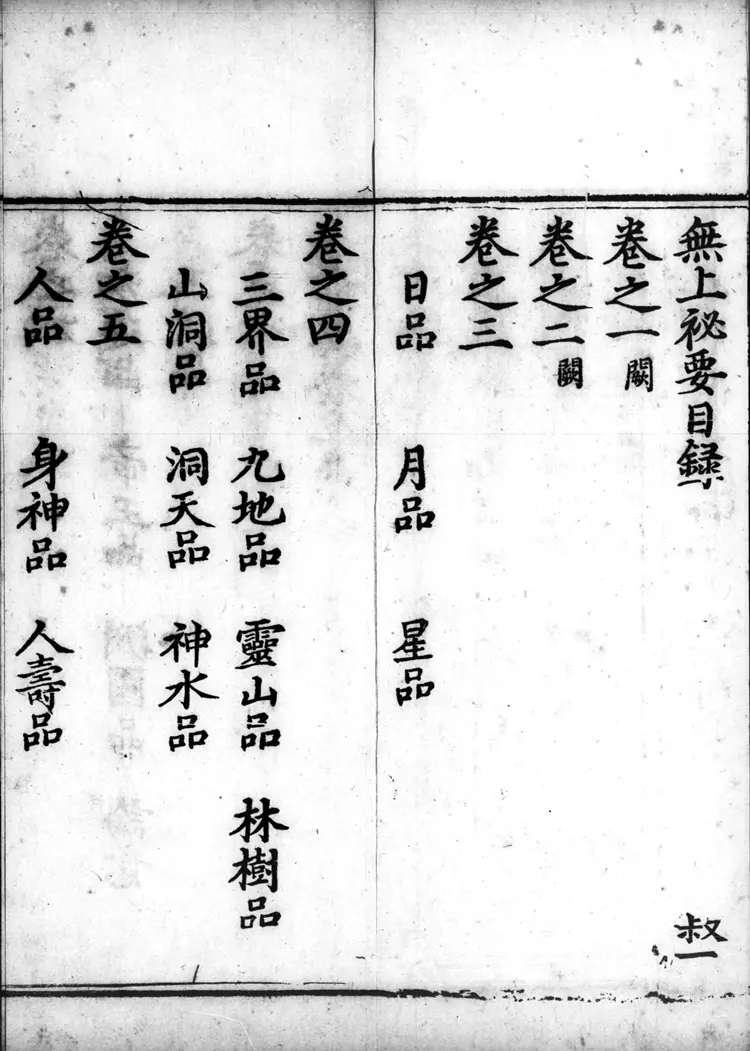 無上祕要目録
叔一
卷之一 闕
卷之二 闕
卷之三
日品 月品 星品
卷之四
三界品 九地品 靈山品 林樹品
山洞品 洞天品 神水品
卷之五
人品 身神品 人壽品